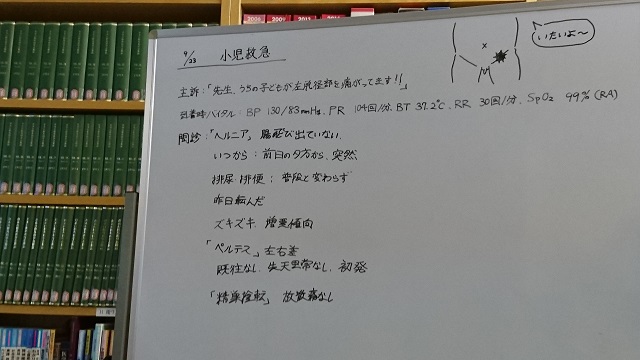 9/23 小児救急
いたいよ～
主訴:「先生、うちの子どもが左鼠径部を痛がってます!!」
到着時バイタル: BP 130/83mmHg, PR 104回/分, BT 37.2℃, RR 30回/分, SpO2 99%(RA)
問診:「ヘルニア」 腸 飛び出ていない
いつから: 前日の夕方から、突然
排尿・排便: 普段と変わらず
昨日転んだ
ズキズキ 増悪傾向
「ペルテス」 左右差
既往なし、先天異常なし、初発
「精巣捻転」 放散痛なし